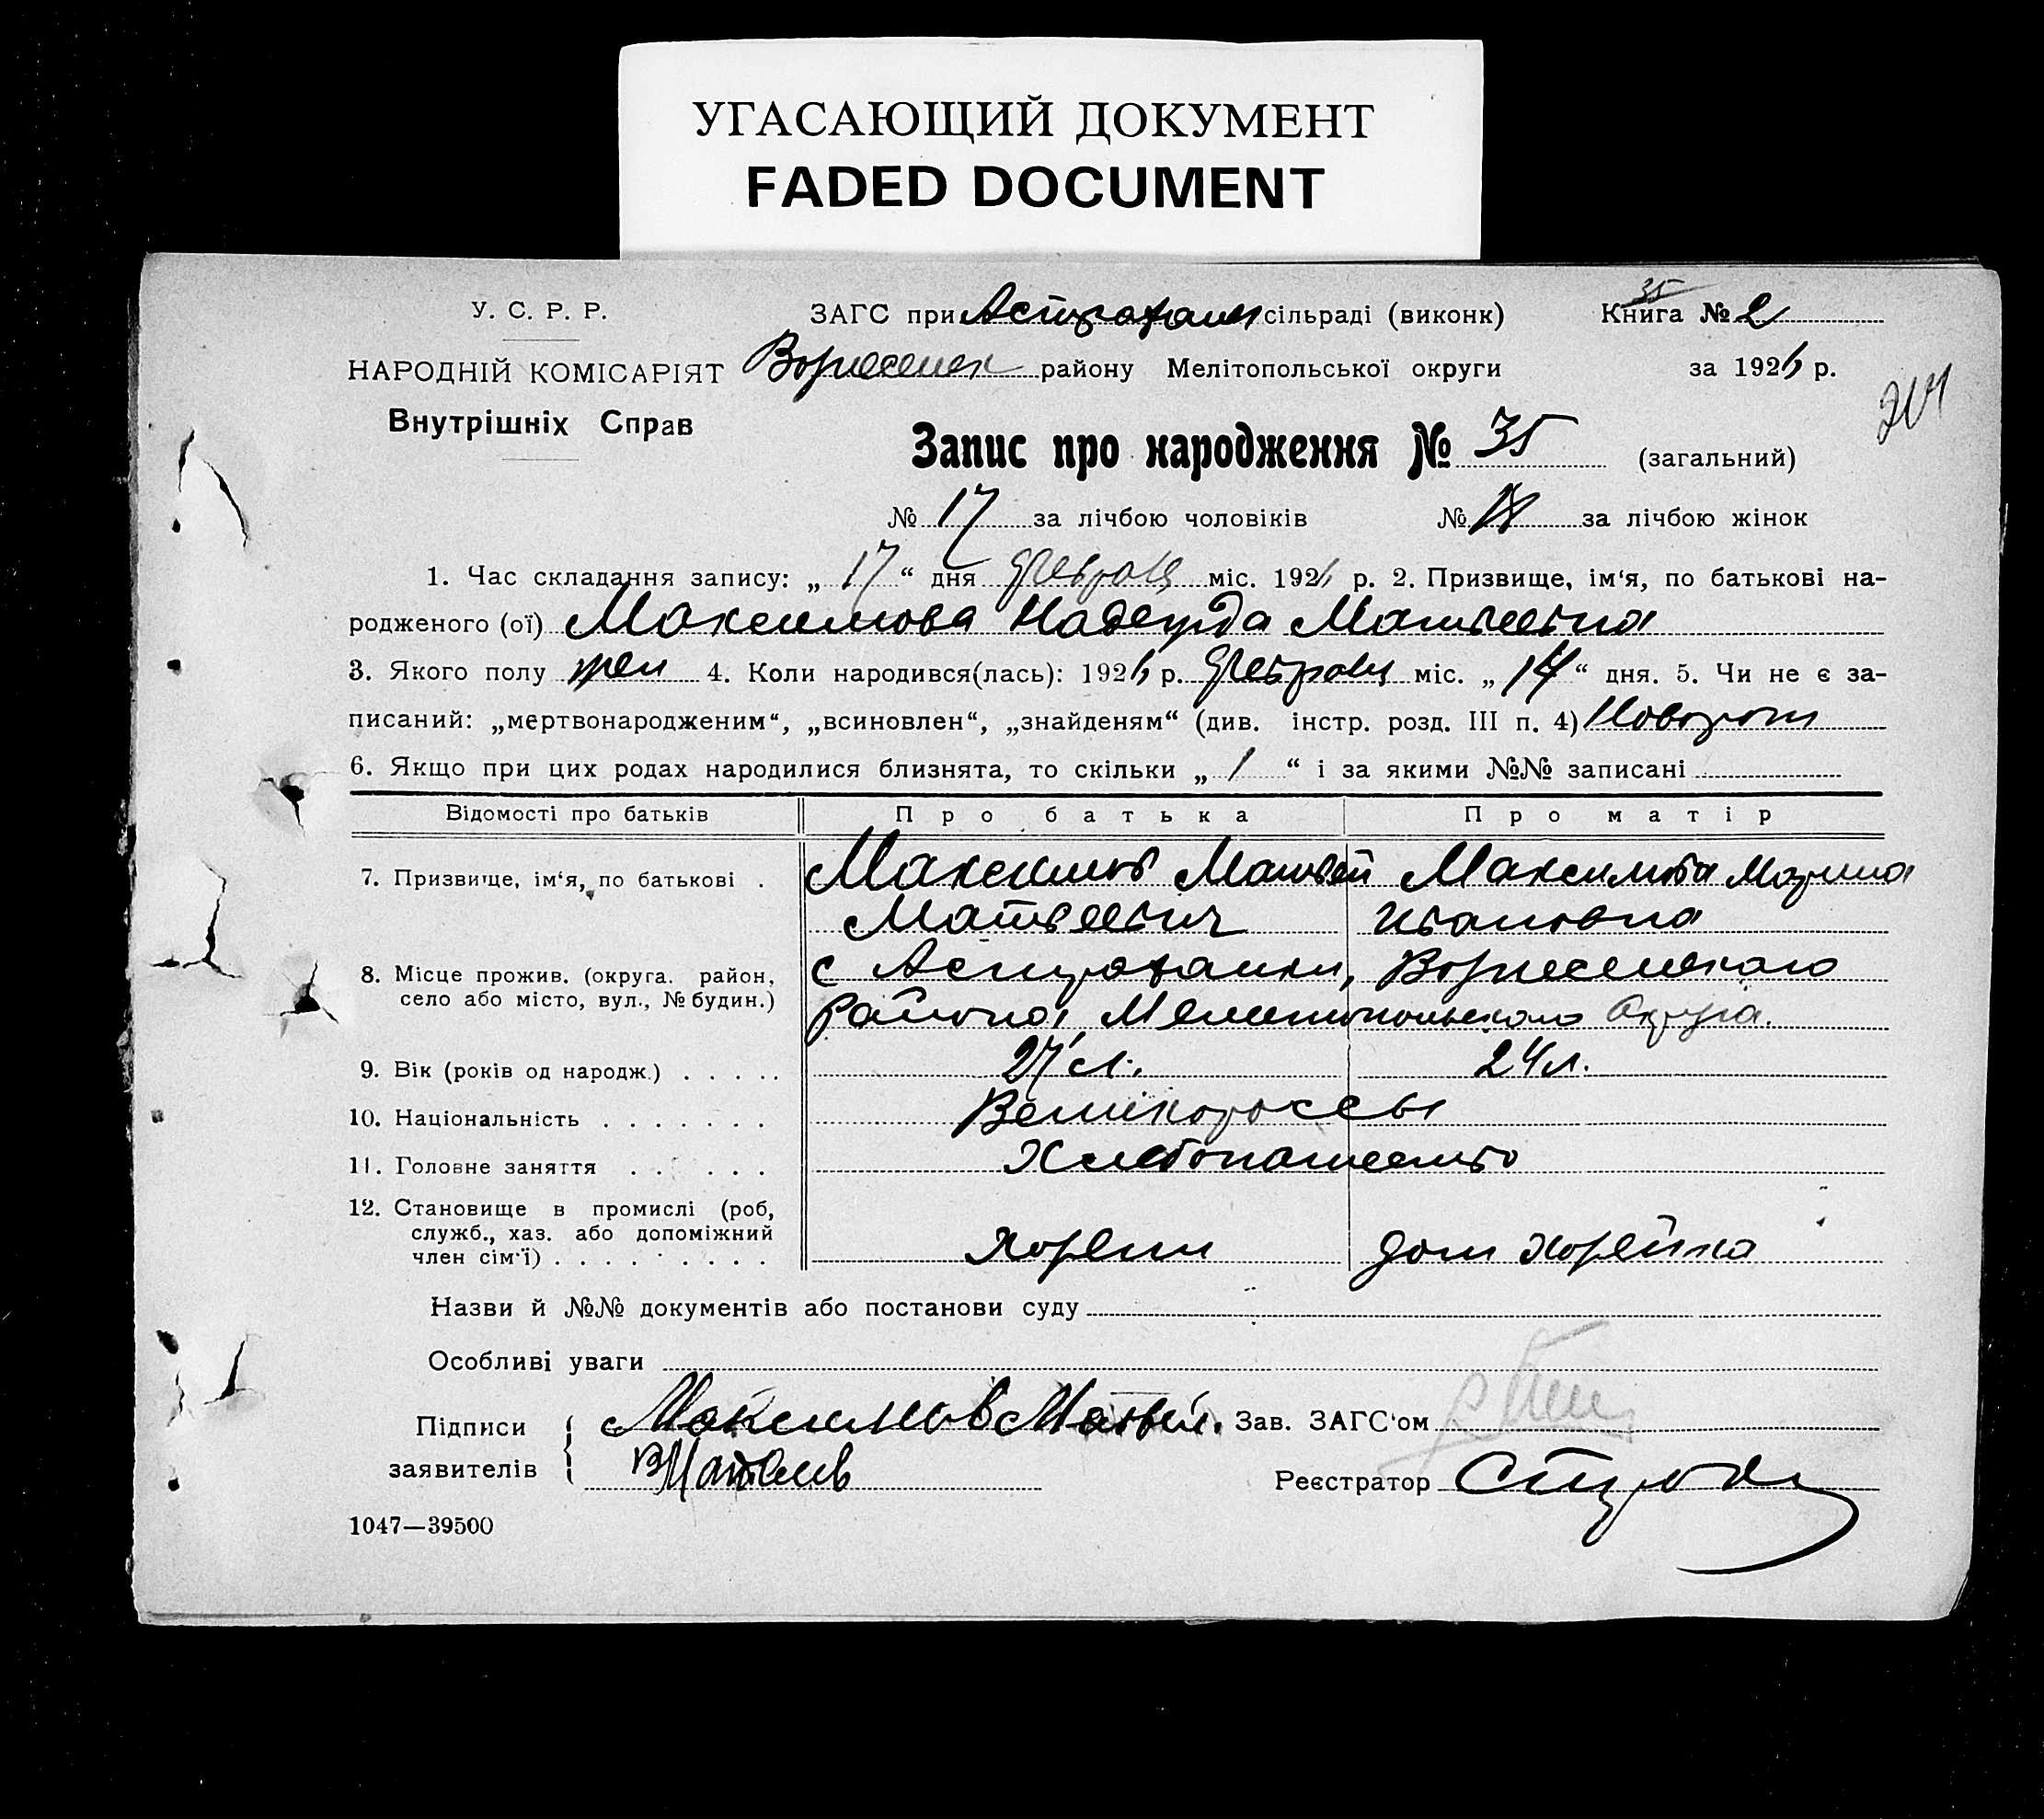 УГАСАЮЩИЙ ДОКУМЕНТ
FADED DOCUMENT
У. С. Р. Р.
НАРОДНІЙ КОМІСАРІЯТ
Внутрішніх Справ
ЗАГС при Астраханск сільраді (виконк)
35
Книга № 2
Вознесенск району Мелітопольської округи
за 1926 р.
Запис про народження № 35 (загальний)
№ 17 за лічбою чоловіків № 18 за лічбою жінок
1. Час складання запису: „ 17 “ дня Февраля міс. 1926 р. 2. Призвище, ім‘я, по батькові на-
родженого (ої) Максимова Надежда Матвеевна
3. Якого полу жен 4. Коли народився(лась): 1926 р. Февраля міс. „ 14 “ дня. 5. Чи не є за-
писаний: „мертвонародженим“, „всиновлен“, „знайденям“ (див. інстр. розд. III п. 4)
6. Якщо при цих родах народилися близнята, то скільки „ 1 “ і за якими №№ записані
Відомості про батьків Про батька Про матір
7. Призвище, ім‘я, по батькові . Максимов Матвей Максимова Марина
Матвеевич Ивановна
8. Місце прожив. (округа. район, с Астраханки, Вознесенскаго
село або місто, вул., № будин.) района, Мелитопольскаго Округа.
9. Вік (років од народж.) . . . . . 27 л. 24 л.
10. Національність . . . . . . . Великороссы
11. Головне заняття . . . . . . Хлебопашество
12. Становище в промислі (роб,
служб., хаз. або допоміжний
член сім‘ї) . . . . . . . . . Хозяин дом хозяйка
Назви й №№ документів або постанови суду
Особливі уваги
Підписи
заявителів
Максимов Матвей. Зав. ЗАГС‘ом
Реєстратор
1047—39500